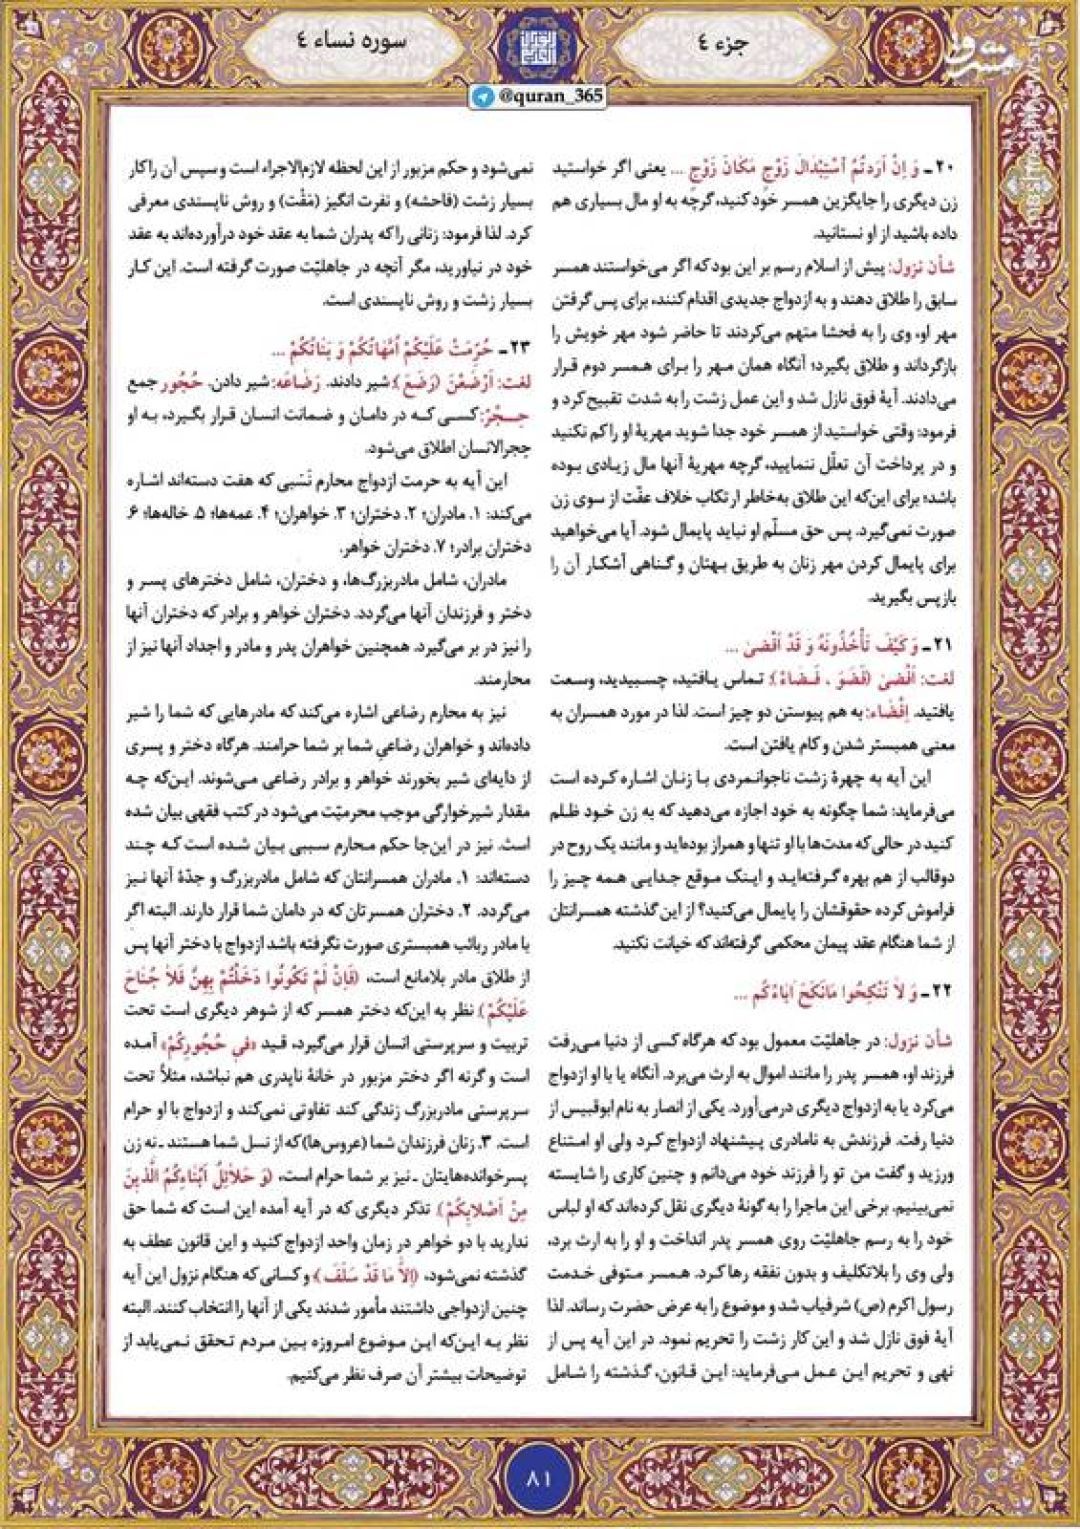 جزء ٤
سوره نساء ٤
مشرق
@quran_365
۲۰ـ وَ اِنْ اَرَدتُمُ اسْتِبْدَالَ زَوْجٍ مَکَانَ زَوْجٍ ... یعنی اگر خواستید
زن دیگری را جایگزین همسر خود کنید، گرچه به او مال بسیاری هم
داده باشید از او نستانید.
شأن نزول: پیش از اسلام رسم بر این بود که اگر می‌خواستند همسر
سابق را طلاق دهند و به ازدواج جدیدی اقدام کنند، برای پس گرفتن
مهر او، وی را به فحشا متهم می‌کردند تا حاضر شود مهر خویش را
بازگرداند و طلاق بگیرد؛ آنگاه همان مهر را برای همسر دوم قرار
می‌دادند. آیهٔ فوق نازل شد و این عمل زشت را به شدت تقبیح کرد و
فرمود: وقتی خواستید از همسر خود جدا شوید مهریهٔ او را کم نکنید
و در پرداخت آن تعلّل ننمایید، گرچه مهریهٔ آنها مال زیادی بوده
باشد؛ برای این‌که این طلاق به‌خاطر ارتکاب خلاف عفّت از سوی زن
صورت نمی‌گیرد. پس حق مسلّم او نباید پایمال شود. آیا می‌خواهید
برای پایمال کردن مهر زنان به طریق بهتان و گناهی آشکار آن را
بازپس بگیرید.
۲۱ـ وَ کَیْفَ تَأْخُذُونَهُ وَ قَدْ اَفْضیٰ ...
لغت: اَفْضیٰ (فَضَوَ ـ فَضَاءٌ): تماس یافتید، چسبیدید، وسعت
یافتید. اِفْضَاء: به هم پیوستن دو چیز است. لذا در مورد همسران به
معنی همبستر شدن و کام یافتن است.
این آیه به چهرهٔ زشت ناجوانمردی با زنان اشاره کرده است
می‌فرماید: شما چگونه به خود اجازه می‌دهید که به زن خود ظلم
کنید در حالی‌که مدت‌ها با او تنها و همراز بوده‌اید و مانند یک روح در
دوقالب از هم بهره گرفته‌اید و اینک موقع جدایی همه چیز را
فراموش کرده حقوقشان را پایمال می‌کنید؟ از این گذشته همسرانتان
از شما هنگام عقد پیمان محکمی گرفته‌اند که خیانت نکنید.
۲۲ـ وَ لاَ تَنْکِحُوا مَانَکَحَ اٰبَاءُکُم ...
شأن نزول: در جاهلیّت معمول بود که هرگاه کسی از دنیا می‌رفت
فرزند او، همسر پدر را مانند اموال به ارث می‌برد. آنگاه یا با او ازدواج
می‌کرد یا به ازدواج دیگری درمی‌آورد. یکی از انصار به نام ابوقبیس از
دنیا رفت. فرزندش به نامادری پیشنهاد ازدواج کرد ولی او امتناع
ورزید و گفت من تو را فرزند خود می‌دانم و چنین کاری را شایسته
نمی‌بینیم. برخی این ماجرا را به گونهٔ دیگری نقل کرده‌اند که او لباس
خود را به رسم جاهلیّت روی همسر پدر انداخت و او را به ارث برد،
ولی وی را بلاتکلیف و بدون نفقه رها کرد. همسر متوفی خدمت
رسول اکرم (ص) شرفیاب شد و موضوع را به عرض حضرت رساند. لذا
آیهٔ فوق نازل شد و این کار زشت را تحریم نمود. در این آیه پس از
نهی و تحریم این عمل می‌فرماید: این قانون، گذشته را شامل
نمی‌شود و حکم مزبور از این لحظه لازم‌الاجراء است و سپس آن را کار
بسیار زشت (فاحشه) و نفرت انگیز (مَقْت) و روش ناپسندی معرفی
کرد. لذا فرمود: زنانی را که پدران شما به عقد خود درآورده‌اند به عقد
خود در نیاورید، مگر آنچه در جاهلیّت صورت گرفته است. این کار
بسیار زشت و روش ناپسندی است.
۲۳ـ حُرِّمَتْ عَلَیْکُمْ اُمَّهَاتُکُمْ وَ بَنَاتُکُمْ ...
لغت: اَرْضَعْنَ (رَضَعَ): شیر دادند. رَضَاعَه: شیر دادن. حُجُور جمع
حِجْرٌ: کسی که در دامان و ضمانت انسان قرار بگیرد، به او
حِجرالانسان اطلاق می‌شود.
این آیه به حرمت ازدواج محارم نَسَبی که هفت دسته‌اند اشاره
می‌کند: ۱. مادران؛ ۲. دختران؛ ۳. خواهران؛ ۴. عمه‌ها؛ ۵. خاله‌ها؛ ۶.
دختران برادر؛ ۷. دختران خواهر.
مادران، شامل مادربزرگ‌ها، و دختران، شامل دخترهای پسر و
دختر و فرزندان آنها می‌گردد. دختران خواهر و برادر که دختران آنها
را نیز در بر می‌گیرد. همچنین خواهران پدر و مادر و اجداد آنها نیز از
محارمند.
نیز به محارم رضاعی اشاره می‌کند که مادرهایی که شما را شیر
داده‌اند و خواهران رضاعیِ شما بر شما حرامند. هرگاه دختر و پسری
از دایه‌ای شیر بخورند خواهر و برادر رضاعی می‌شوند. این‌که چه
مقدار شیرخوارگی موجب محرمیّت می‌شود در کتب فقهی بیان شده
است. نیز در این‌جا حکم محارم سببی بیان شده است که چند
دسته‌اند: ۱. مادران همسرانتان که شامل مادربزرگ و جدّهٔ آنها نیز
می‌گردد. ۲. دختران همسرتان که در دامان شما قرار دارند. البته اگر
با مادر ربائب همبستری صورت نگرفته باشد ازدواج با دختر آنها پس
از طلاق مادر بلامانع است، ﴿فَاِنْ لَمْ تَکُونُوا دَخَلْتُمْ بِهِنَّ فَلاَ جُنَاحَ
عَلَیْکُمْ﴾ نظر به این‌که دختر همسر که از شوهر دیگری است تحت
تربیت و سرپرستی انسان قرار می‌گیرد، قید «فِي حُجُورِکُمْ» آمده
است و گرنه اگر دختر مزبور در خانهٔ ناپدری هم نباشد، مثلاً تحت
سرپرستی مادربزرگ زندگی کند تفاوتی نمی‌کند و ازدواج با او حرام
است. ۳. زنان فرزندان شما (عروس‌ها) که از نسل شما هستند ـ نه زن
پسرخوانده‌هایتان ـ نیز بر شما حرام است، ﴿وَ حَلاَئِلُ اَبْنَاءِکُمُ الَّذِینَ
مِنْ اَصْلاَبِکُمْ﴾. تذکر دیگری که در آیه آمده این است که شما حق
ندارید با دو خواهر در زمان واحد ازدواج کنید و این قانون عطف به
گذشته نمی‌شود، ﴿اِلاَّ مَا قَدْ سَلَفَ﴾ و کسانی که هنگام نزول این آیه
چنین ازدواجی داشتند مأمور شدند یکی از آنها را انتخاب کنند. البته
نظر به این‌که این موضوع امروزه بین مردم تحقق نمی‌یابد از
توضیحات بیشتر آن صرف نظر می‌کنیم.
۸۱